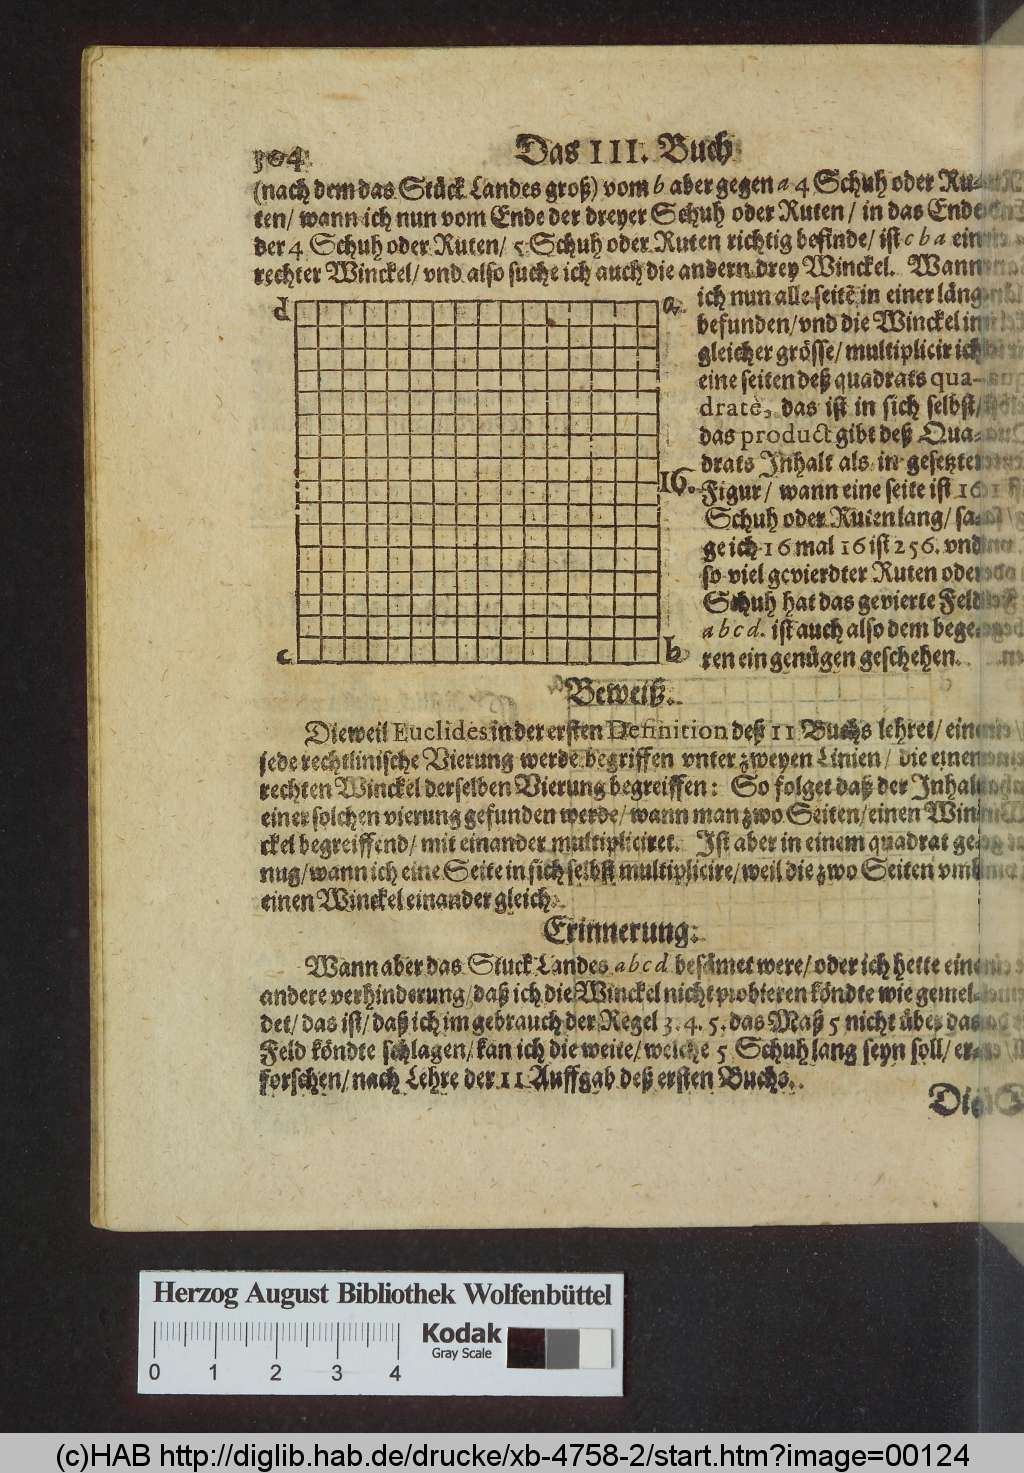 104
Das III. Buch
(nach dem das Stück Landes groß) vom b aber gegen a 4 Schuh oder Ru-
ten/ wann ich nun vom Ende der dreyer Schuh oder Ruten/ in das Ende
der 4 Schuh oder Ruten/ 5 Schuh oder Ruten richtig befinde/ ist c b a ein
rechter Winckel/ vnd also suche ich auch die andern drey Winckel. Wann
ich nun alle seitē in einer läng
befunden/ vnd die Winckel in
gleicher grösse/ multiplicir ich
eine seiten deß quadrats qua-
dratè, das ist in sich selbst/
das product gibt deß Qua-
drats Inhalt als in gesetzter
Figur/ wann eine seite ist 16
Schuh oder Ruten lang/ sa-
ge ich 16 mal 16 ist 256. vnd
so viel gevierdter Ruten oder
Schuh hat das gevierte Feld
a b c d. ist auch also dem bege-
ren ein genügen geschehen.
d
a
16.
c
b
Beweiß.
Dieweil Euclides in der ersten Definition deß 11 Buchs lehret/ ein
jede rechtlinische Vierung werde begriffen vnter zweyen Linien/ die einen
rechten Winckel derselben Vierung begreiffen: So folget daß der Inhalt
einer solchen vierung gefunden werde/ wann man zwo Seiten/ einen Win-
ckel begreiffend/ mit einander multipliciret. Ist aber in einem quadrat ge-
nug/ wann ich eine Seite in sich selbst multiplicire/ weil die zwo Seiten vmb
einen Winckel einander gleich.
Erinnerung.
Wann aber das Stuck Landes a b c d besämet were/ oder ich hette eine
andere verhinderung/ daß ich die Winckel nicht probieren köndte wie gemel-
det/ das ist/ daß ich im gebrauch der Regel 3. 4. 5. das Maß 5 nicht über das
Feld köndte schlagen/ kan ich die weite/ welche 5 Schuh lang seyn soll/ er-
forschen/ nach Lehre der 11 Auffgab deß ersten Buchs.
Die
Herzog August Bibliothek Wolfenbüttel
0 1 2 3 4
Kodak
Gray Scale
(c)HAB http://diglib.hab.de/drucke/xb-4758-2/start.htm?image=00124